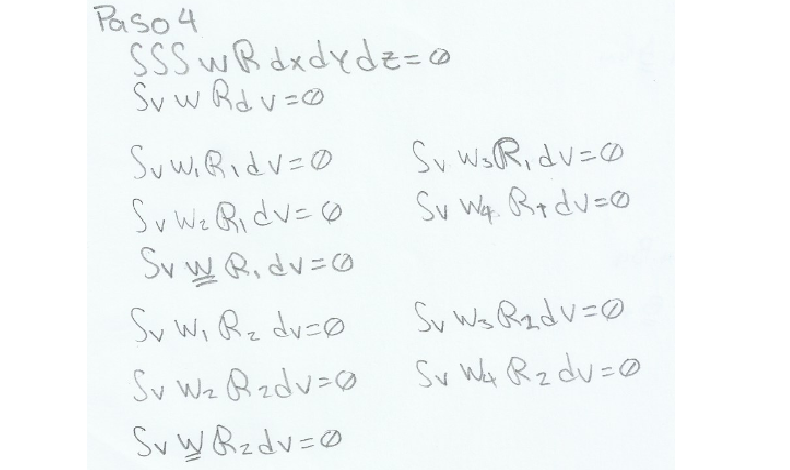 Paso 4
∫∫∫ w R dx dy dz = 0
∫v w R dv = 0
∫v w₁ R₁ dv = 0
∫v w₂ R₁ dv = 0
∫v w₃ R₁ dv = 0
∫v w₄ R₁ dv = 0
∫v w̳ R₁ dv = 0
∫v w₁ R₂ dv = 0
∫v w₂ R₂ dv = 0
∫v w₃ R₂ dv = 0
∫v w₄ R₂ dv = 0
∫v w̳ R₂ dv = 0